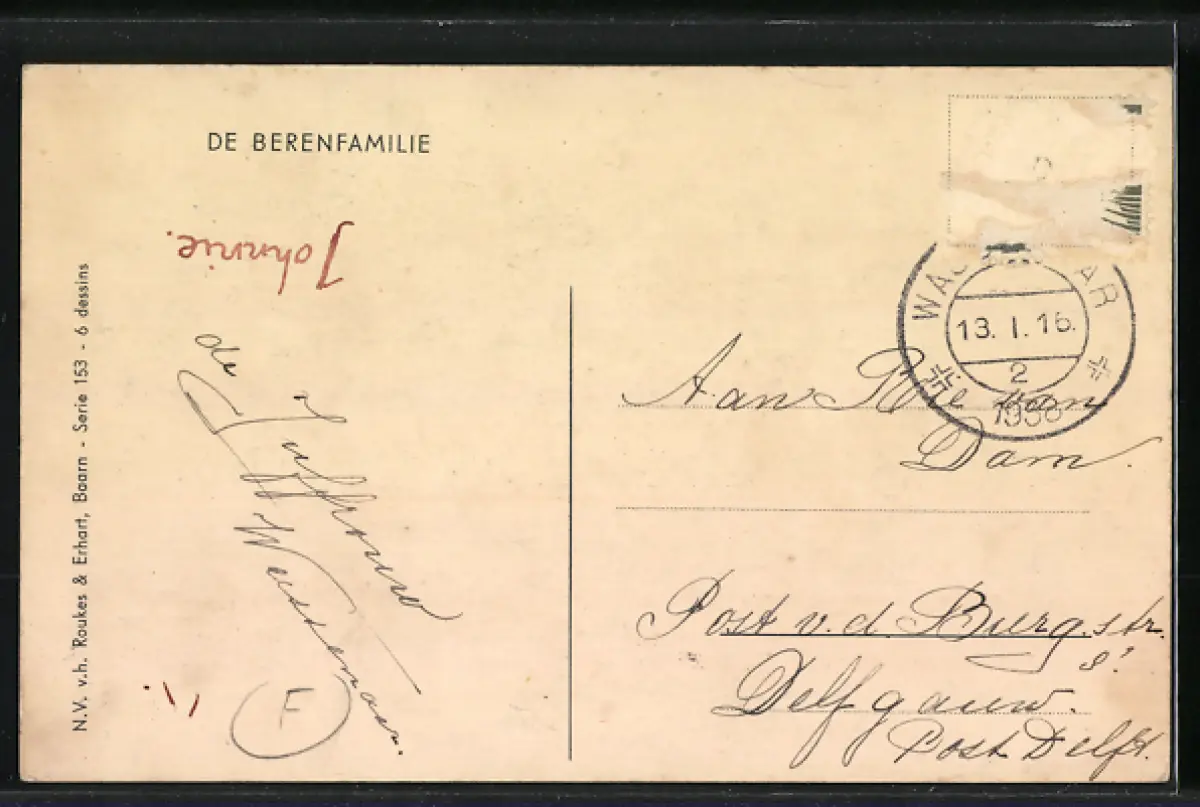 DE BERENFAMILIE
Johnnie.
de
Juffrouw
N.V. v.h. Roukes & Erhart, Baarn - Serie 153 - 6 dessins
F
13. I. 16.
2
1938
Aan Rie van
Dam.
Post v.d. Burg.str.
Delfgauw.
Post Delft.